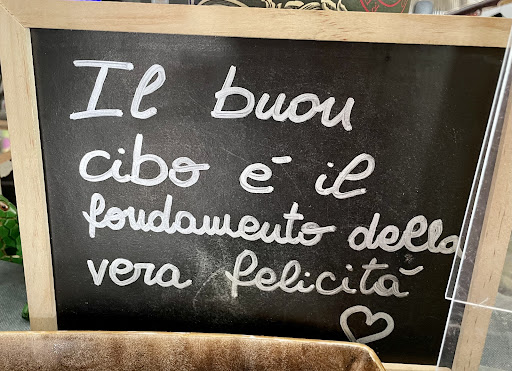 Il buon
cibo é il
fondamento della
vera felicitá